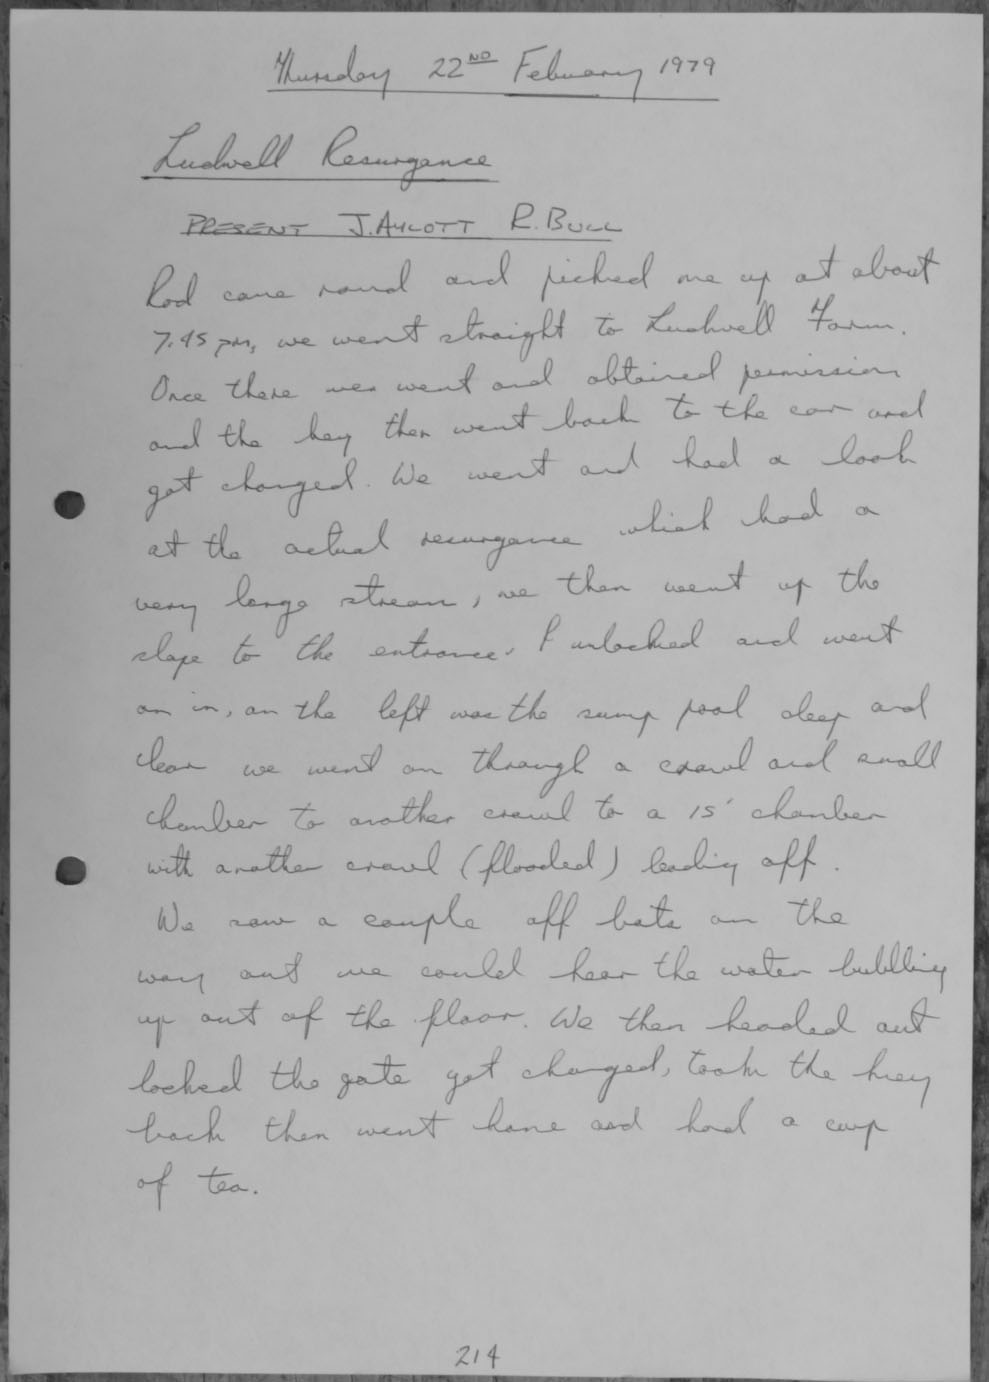 Thursday 22ND Febuary 1979
Ludwell Resurgence
PRESENT J.AYLOTT R.BULL
Rod came round and picked me up at about
7.45 pm, we went straight to Ludwell Farm.
Once there we went and obtained permission
and the key then went back to the car and
got changed. We went and had a look
at the actual resurgence which had a
very large stream, we then went up the
slope to the entrance. I unlocked and went
on in, on the left was the sump pool deep and
clear we went on through a crawl and small
chamber to another crawl to a 15' chamber
with another crawl (flooded) leading off.
We saw a couple off bats on the
way out we could hear the water bubbling
up out of the floor. We then headed out
locked the gate got changed, took the key
back then went home and had a cup
of tea.
214